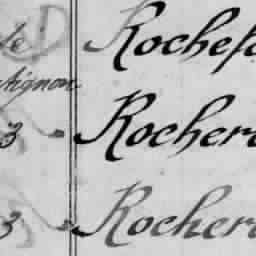 de Rochefo
Aignon
3 Rochero
3 Rochero